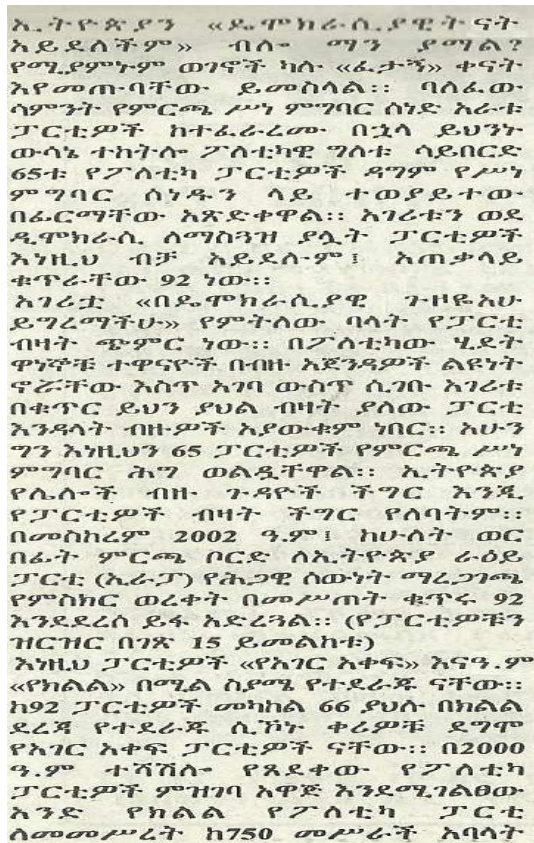 ኢትዮጵያን «ዴሞክራሲያዊት ናት
አይደለችም» ብሎ ማን ያማል?
የሚያምኑም ወገኖች ካሉ «ፈታኝ» ቀናት
እየመጡባቸው ይመስላል፡፡ ባለፈው
ሳምንት የምርጫ ሥነ ምግባር ሰነድ አራቱ
ፓርቲዎች ከተፈራረሙ በኋላ ይህንኑ
ውሳኔ ተከትሎ ፖለቲካዊ ግለቱ ሳይበርድ
65ቱ የፖለቲካ ፓርቲዎች ዳግም የሥነ
ምግባር ሰነዱን ላይ ተወያይተው
በፊርማቸው አጽድቀዋል፡፡ አገሪቱን ወደ
ዲሞክራሲ ለማስጓዝ ያሏት ፓርቲዎች
እነዚህ ብቻ አይደሉም፤ አጠቃላይ
ቁጥራቸው 92 ነው፡፡
አገሪቷ «በዴሞክራሲያዊ ጉዞዬአሀ
ይግረማችሁ» የምትለው ባላት የፓርቲ
ብዛት ጭምር ነው፡፡ በፖለቲካው ሂደት
ዋነኞቹ ተዋናዮች በብዙ አጀንዳዎች ልዩነት
ኖሯቸው እስጥ አገባ ውስጥ ሲገቡ አገሪቱ
በቁጥር ይህን ያህል ብዛት ያለው ፓርቲ
እንዳላት ብዙዎች አያውቁም ነበር፡፡ አሁን
ግን እነዚህን 65 ፓርቲዎች የምርጫ ሥነ
ምግባር ሕግ ወልዷቸዋል፡፡ ኢትዮጵያ
የሌሎች ብዙ ጉዳዮች ችግር እንጂ
የፓርቲዎች ብዛት ችግር የለባትም፡፡
በመስከረም 2002 ዓ.ም፤ ከሁለት ወር
በፊት ምርጫ ቦርድ ለኢትዮጵያ ራዕይ
ፓርቲ (ኢራፓ) የሕጋዊ ሰውነት ማረጋገጫ
የምስክር ወረቀት በመሥጠት ቁጥሩ 92
እንደደረሰ ይፋ አድረጓል፡፡ (የፓርቲዎቹን
ዝርዝር በገጽ 15 ይመልከቱ)
እነዚህ ፓርቲዎች «የአገር አቀፍ» እናዓ.ም
«የክልል» በሚል ስያሜ የተደራጁ ናቸው፡፡
ከ92 ፓርቲዎች መካከል 66 ያህሉ በክልል
ደረጃ የተደራጁ ሲኾኑ ቀሪዎቹ ደግሞ
የአገር አቀፍ ፓርቲዎች ናቸው፡፡ በ2000
ዓ.ም ተሻሽሎ የጸደቀው የፖለቲካ
ፓርቲዎች ምዝገባ አዋጅ እንደሚገልፀው
አንድ የክልል የፖለቲካ ፓርቲ
ለመመሥረት ከ750 መሥራች አባላት